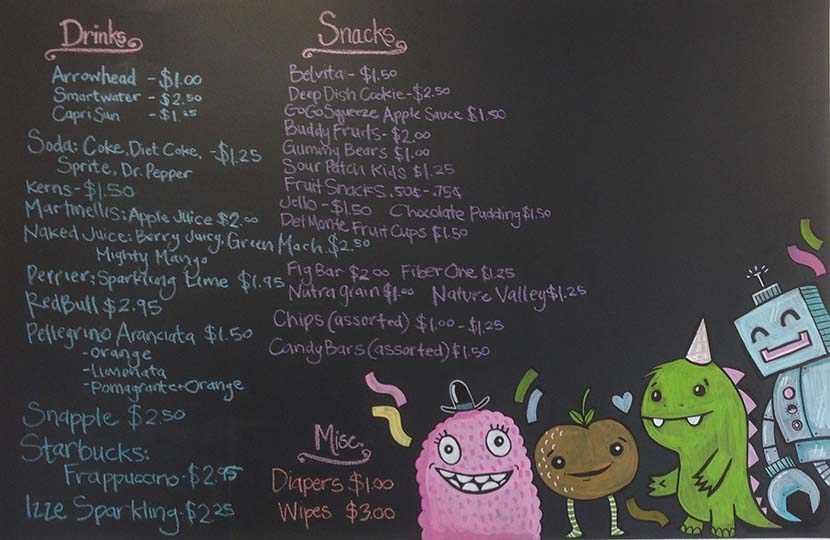 Drinks
Arrowhead - $1.00
Smartwater - $2.50
Capri Sun - $1.25
Soda: Coke, Diet Coke, - $1.25
Sprite, Dr. Pepper
Kerns - $1.50
Martinellis: Apple Juice $2.00
Naked Juice: Berry Juicy, Green Mach. $2.50
Mighty Mango
Perrier; Sparkling Lime $1.95
RedBull $2.95
Pellegrino Aranciata $1.50
-Orange
-Limonata
-Pomagrante+Orange
Snapple $2.50
Starbucks:
Frappuccino - $2.95
Izze Sparkling - $2.25
Snacks
Belvita - $1.50
Deep Dish Cookie - $2.50
GoGo Squeeze Apple Sauce $1.50
Buddy Fruits - $2.00
Gummy Bears $1.00
Sour Patch Kids $1.25
Fruit Snacks .50¢ - .75¢
Jello - $1.50 Chocolate Pudding $1.50
Del Monte Fruit Cups $1.50
Fig Bar $2.00 Fiber One $1.25
Nutra grain $1.00 Nature Valley $1.25
Chips (assorted) $1.00 - $1.25
Candy Bars (assorted) $1.50
Misc.
Diapers $1.00
Wipes $3.00